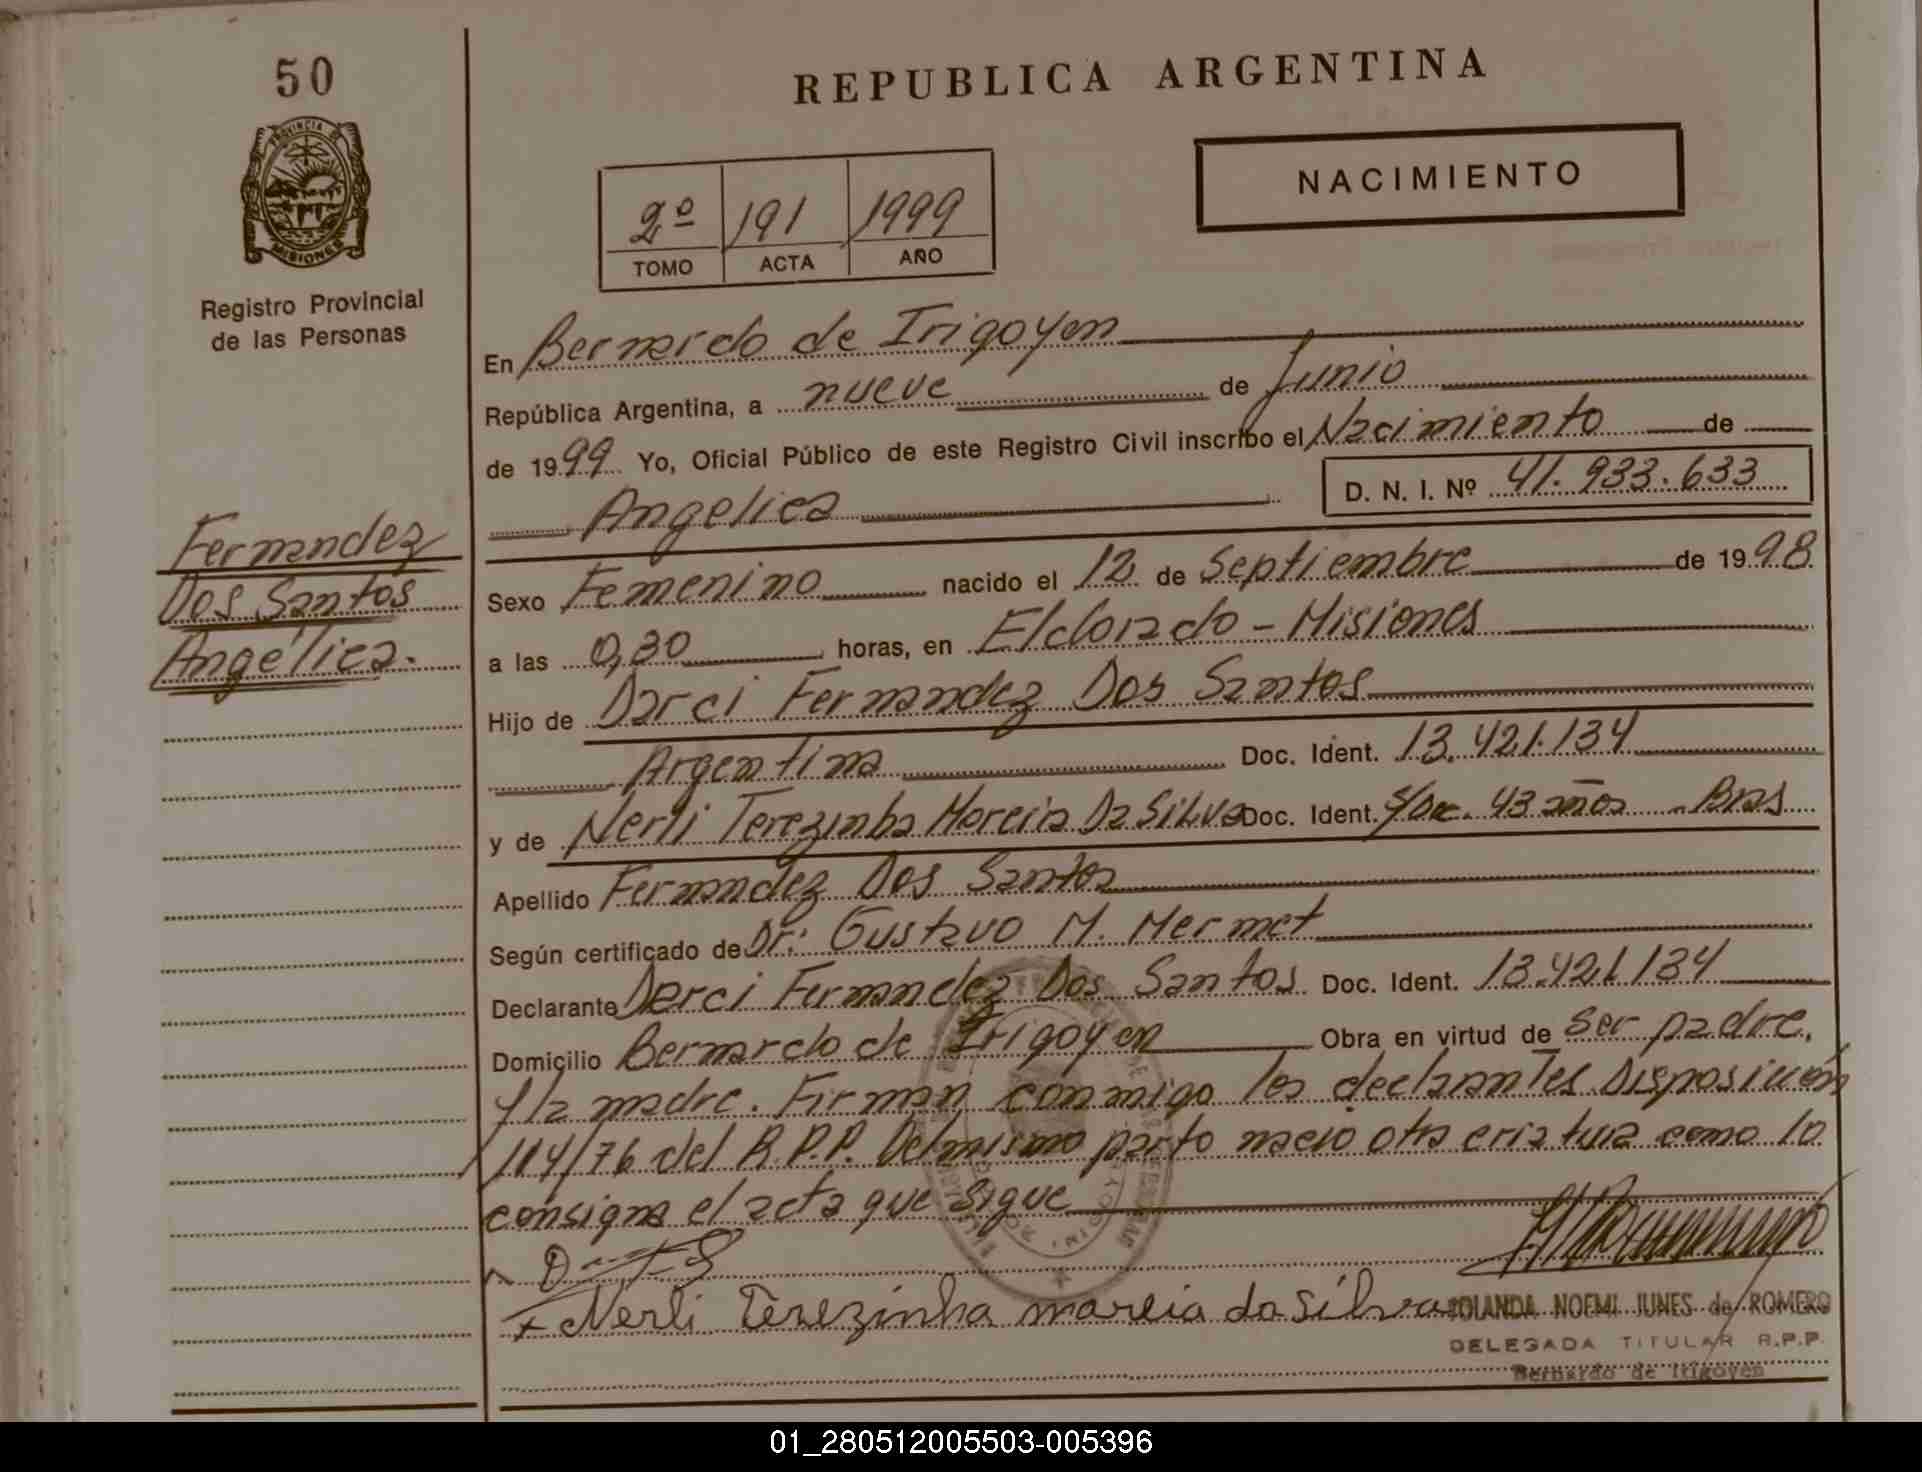 50
PROVINCIA DE
MISIONES
Registro Provincial
de las Personas
Fernandez
Dos Santos
Angélica.
REPUBLICA ARGENTINA
NACIMIENTO
2º 191 1999
TOMO ACTA AÑO
En Bernardo de Irigoyen
República Argentina, a nueve de Junio
de 1999 Yo, Oficial Público de este Registro Civil inscribo el Nacimiento de
Angelica D. N. I. Nº 41.933.633
Sexo Femenino nacido el 12 de Septiembre de 1998
a las 0,30 horas, en Eldorado - Misiones
Hijo de Darci Fernandez Dos Santos
Argentina Doc. Ident. 13.421.134
y de Nerli Terezinha Moreira Da Silva Doc. Ident. S/Doc. 43 años - Bras
Apellido Fernandez Dos Santos
Según certificado de Dr: Gustavo M. Mermet
Declarante Derci Fernandez Dos Santos Doc. Ident. 13.421.134
Domicilio Bernardo de Irigoyen Obra en virtud de ser padre,
y la madre. Firman conmigo los declarantes Disposición
114/76 del R.P.P. Del mismo parto nacio otra criatura como lo
consigna el acta que sigue
x Nerli Terezinha mareia da silva
YOLANDA NOEMI JUNES de ROMERO
DELEGADA TITULAR R.P.P.
Bernardo de Irigoyen
01_280512005503-005396